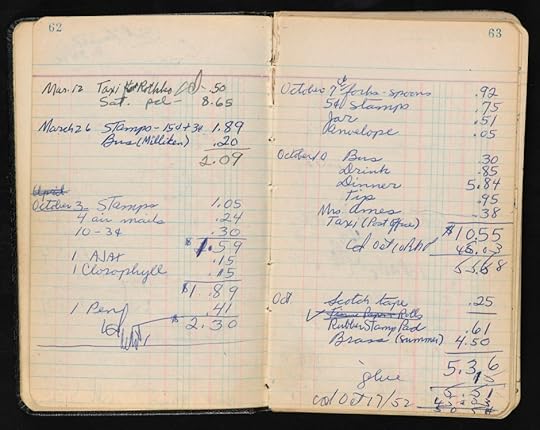 62
Mar. 12 Taxi Rothko .50
Sat. pcl - 8.65
March 26 Stamps - 15¢ + 3¢ 1.89
Bus (Milliken) .20
2.09
April
October 3 Stamps 1.05
4 air mails .24
10 - 3¢ .30
$ 1.59
1 AJAX .15
1 Clorophyll .15
$1.89
1 Pen .41
$ 2.30
63
October 7 forks - spoons .92
5¢ Stamps .75
Jar .51
Envelope .05
October 10 Bus .30
Drink .85
Dinner 5.84
Tip .95
Mrs. Ames .38
Taxi (Post Office)
$10.55
45.03
Oct
Scotch tape .25
Rolls
Rubber Stamp Pad .61
Brass (summer) 4.50
5.36
glue 15
Oct 17/52